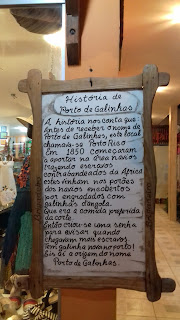 História de
Porto de Galinhas
A história nos conta que
Antes de receber o nome de
Porto de Galinhas, este local
chamava-se Porto Rico
Em 1850 começaram
a aportar na área navios
trazendo escravos
contrabandeados da Africa
estes vinham nos porões
dos navios encobertos
por engradados com
galinhas d'angola.
Que era a comida preferida
da corte.
Então criou-se uma senha
para avisar quando
chegavam mais escravos.
Tem galinha nova no porto!
Eis aí a origem do nome
Porto de Galinhas.